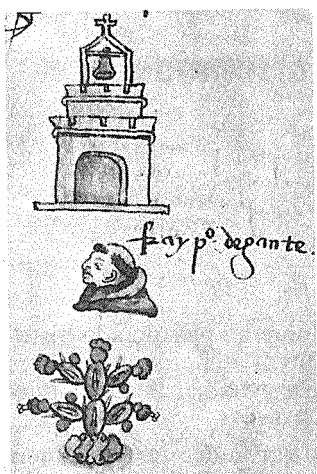 fray pº. degante.